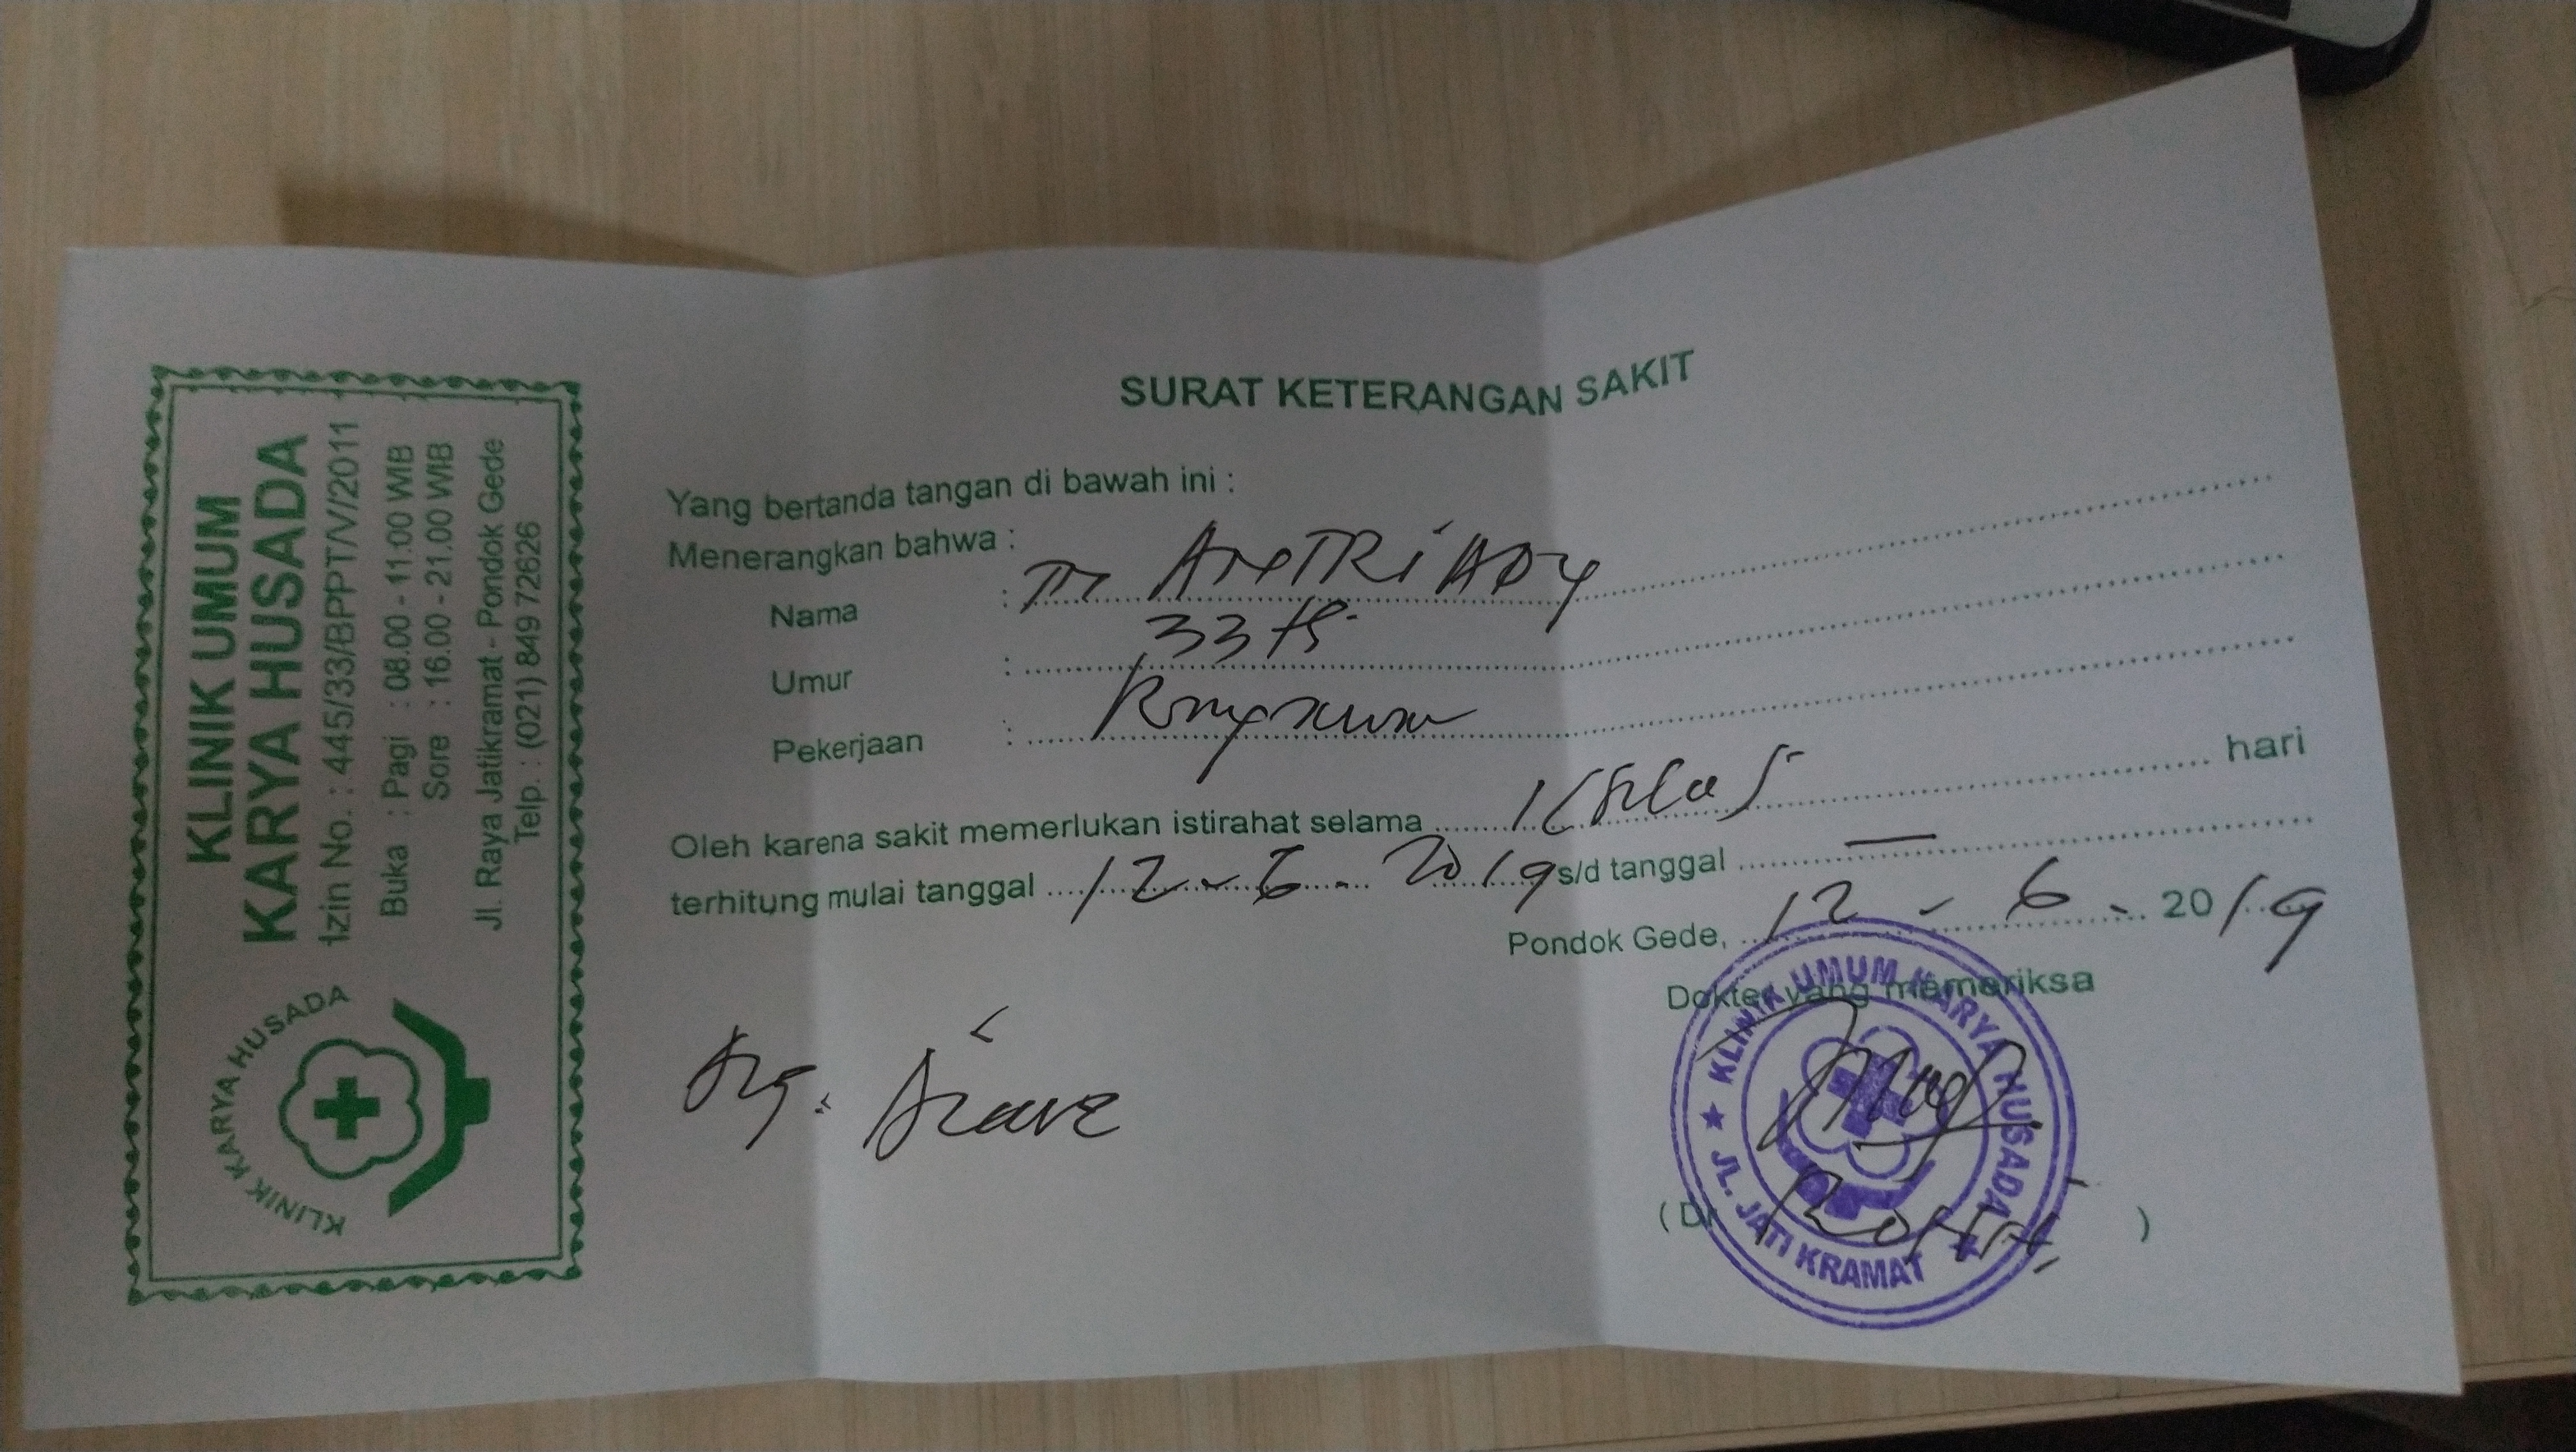 KLINIK UMUM
KARYA HUSADA
Izin No. : 445/33/BPPT/V/2011
Buka : Pagi : 08.00 - 11.00 WIB
Sore : 16.00 - 21.00 WIB
Jl. Raya Jatikramat - Pondok Gede
Telp. : (021) 849 72626
KLINIK KARYA HUSADA
SURAT KETERANGAN SAKIT
Yang bertanda tangan di bawah ini :
Menerangkan bahwa :
Nama :
Umur : 33
Pekerjaan :
Oleh karena sakit memerlukan istirahat selama 1 hari
terhitung mulai tanggal 12 - 6 - 2019 s/d tanggal —
Pondok Gede, 12 - 6 - 2019
Dokter yang memeriksa
KLINIK UMUM KARYA HUSADA
JL. JATI KRAMAT